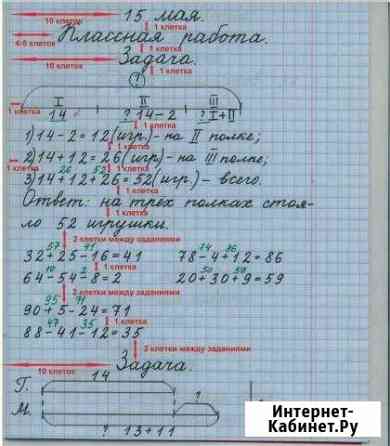 15 мая.
10 клеток
1 клетка
4-5 клеток
Классная работа.
1 клетка
10 клеток
Задача.
1 клетка
?
I II III
1 клетка
14 ? 14-2 ? I+II
1 клетка
1) 14-2=12 (игр.)- на II полке;
1 клетка
2) 14+12=26 (игр.)- на III полке;
1 клетка
1 клетка
26 26
3) 14+12+26=52 (игр.) - всего.
1 клетка
Ответ: на трёх полках стоя-
ло 52 игрушки.
2 клетки между заданиями
57 41 74 86
32+25-16=41 78-4+12=86
1 клетка
10 2 50 59
64-54-8=2 20+30+9=59
2 клетки между заданиями
95 71
90+5-24=71
1 клетка
47 35
88-41-12=35
2 клетки между заданиями
10 клеток
Задача.
14
П.
?
М.
? 13+11
Интернет-
Кабинет.Ру